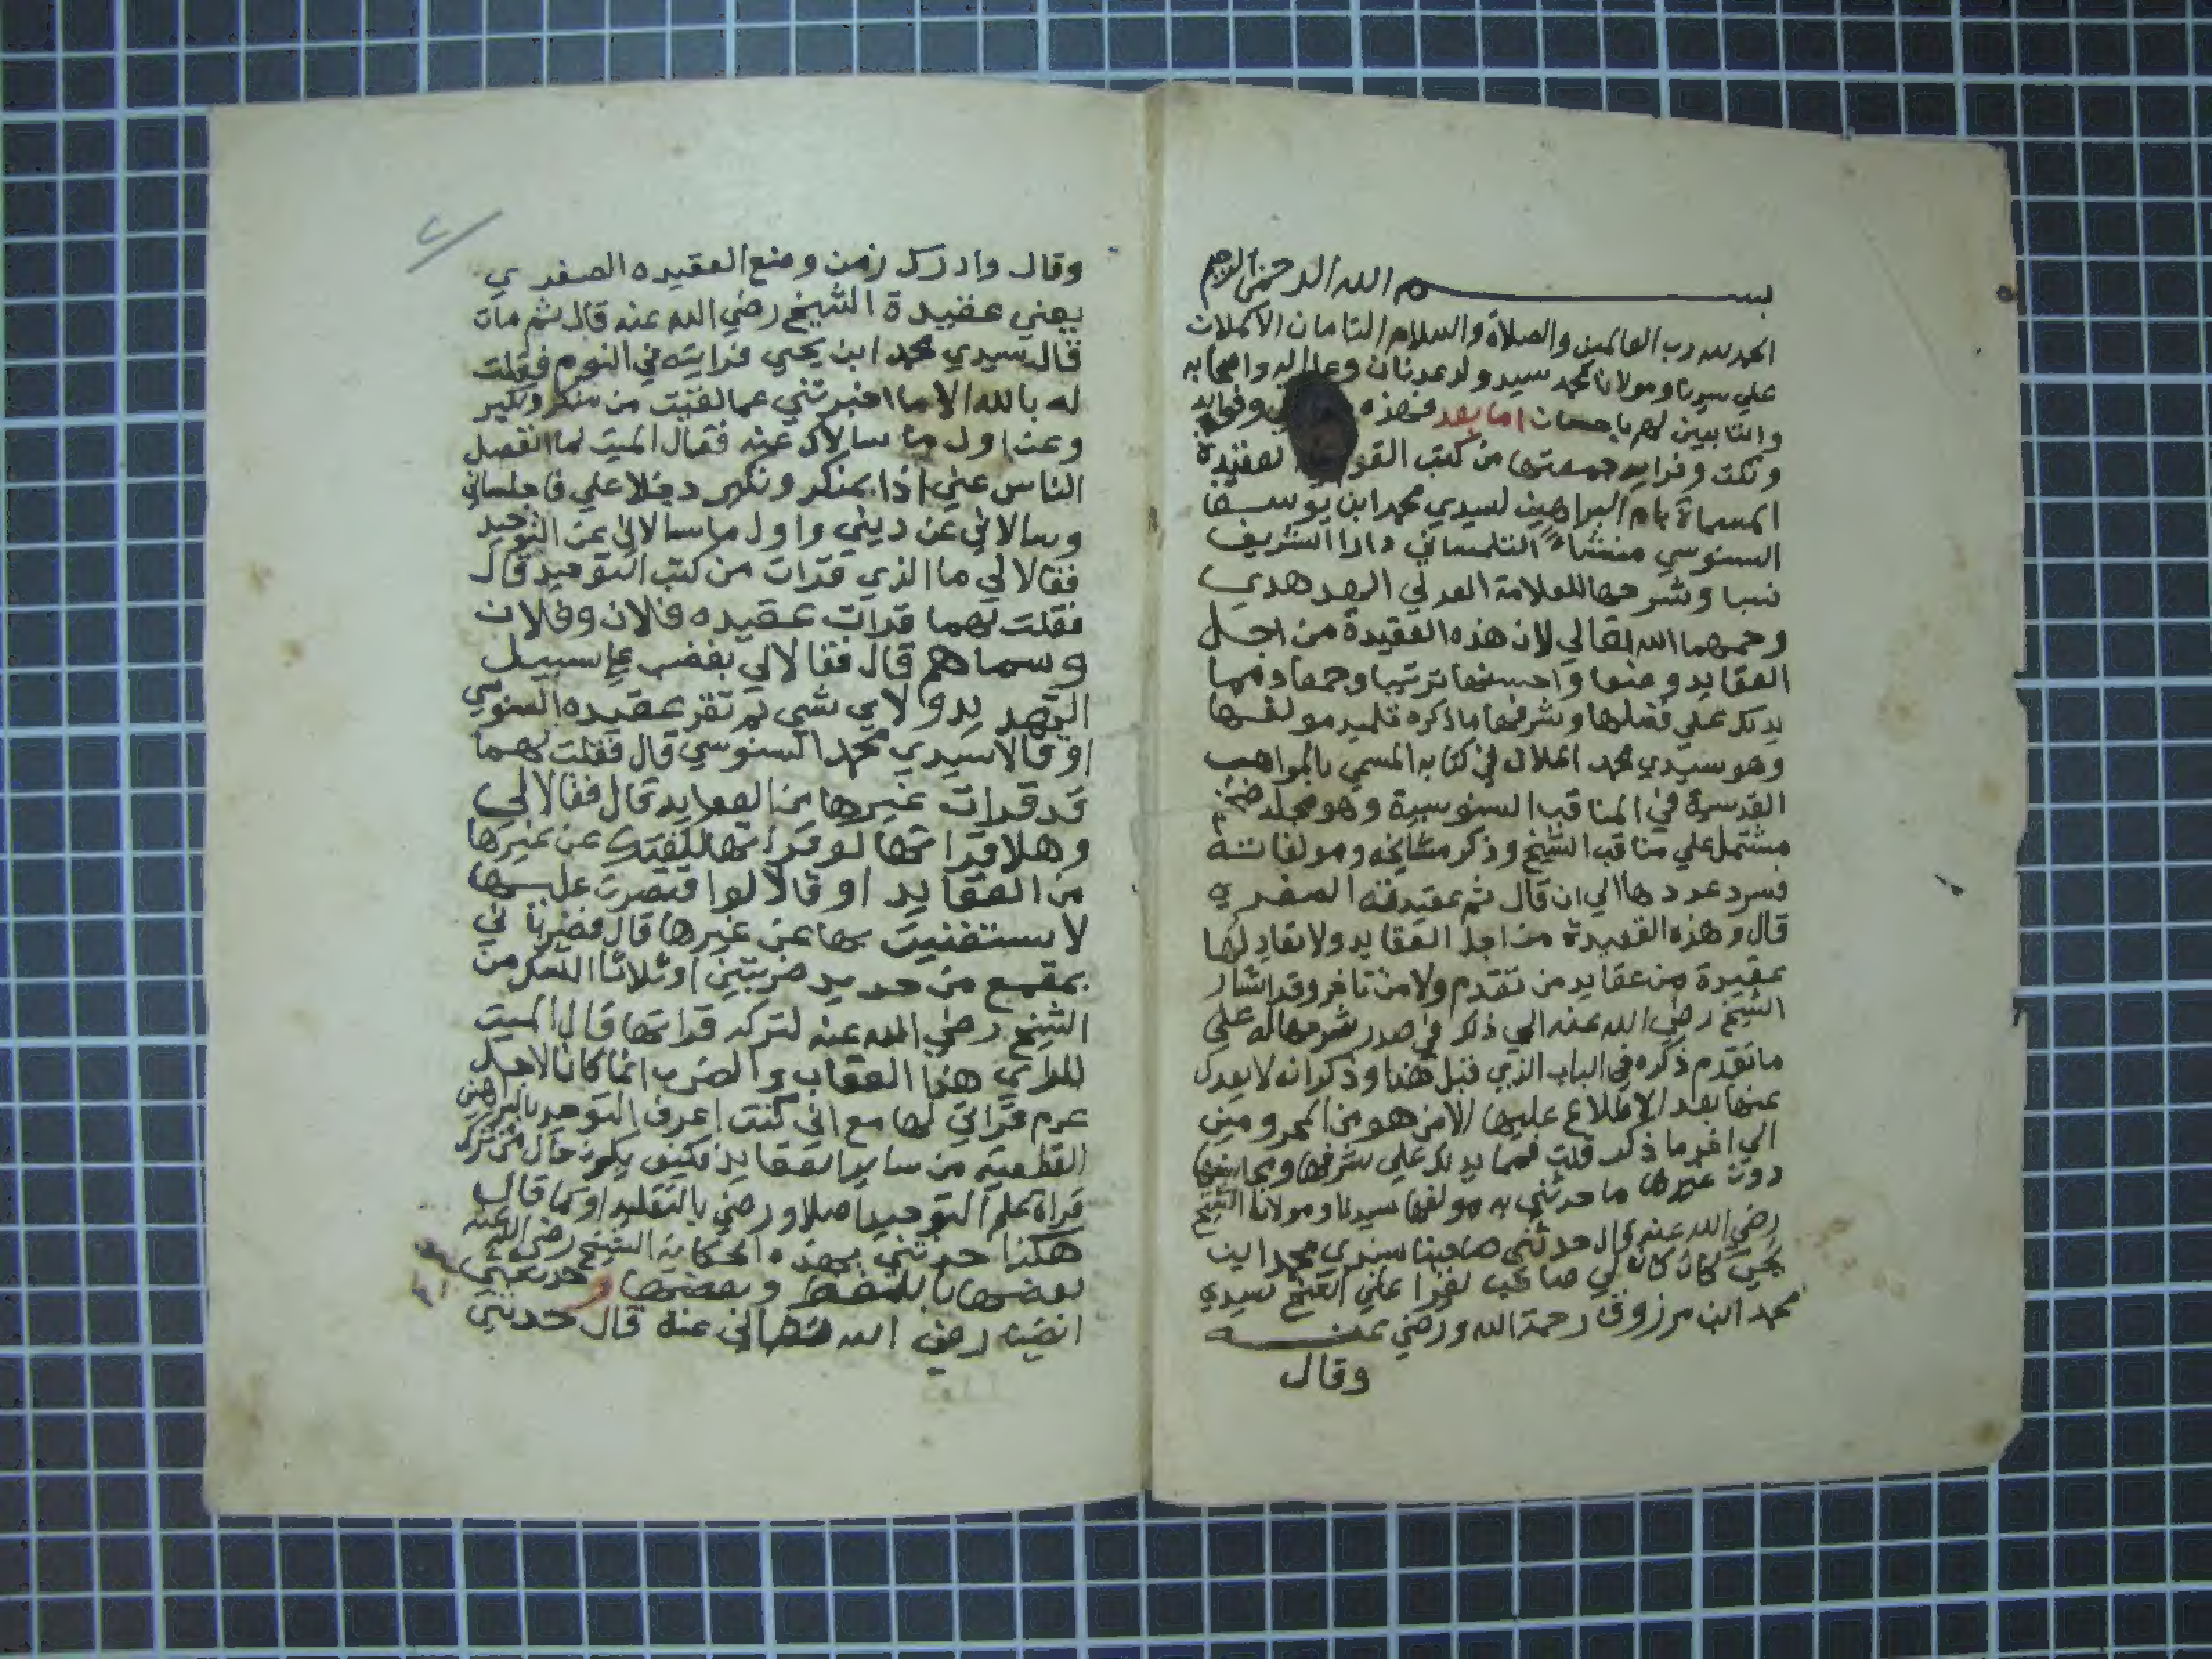 بسم الله الرحمن الرحيم
الحمد لله رب العالمين والصلاة والسلام التامان الاكملان
علي سيدنا ومولانا محمد سيد ولد عدنان وعلي اله واصحابه
والتابعين لهم باحسان اما بعد فهذه وفوايد
ونكت وفرايد جمعتها من كتب القوم العقيدة
المسماة بام البراهين لسيدي محمد ابن يوسف
السنوسي منشاء التلمساني دارا الشريف
نسبا وشرحها للعلامة العدلي الهدهدي
رحمهما الله تعالي لان هذه العقيدة من اجل
العقايد وضعا واحسنها ترتيبا وجمعا ومما
يدلك علي فضلها وشرفها ما ذكره تلميد مولفها
وهو سيدي محمد الملالي في كتابه المسمي بالمواهب
القدسية في المناقب السنوسية وهو مجلد ضخم
مشتمل علي مناقب الشيخ وذكر مشايخه ومولفاته
فسرد عددها الي ان قال ثم عقيدته الصغري
قال وهذه العقيدة من اجل العقايد ولا تعادلها
عقيدة من عقايد من تقدم ولا من تاخر وقد اشار
الشيخ رضي الله عنه الي ذلك في صدر شرحها له علي
ما تقدم ذكره في الباب الذي قبل هذا وذكر انه لا يعدل
عنها بعد الاطلاع عليها الا من هو من المحرومين
الي اخر ما ذكر قلت فمما يدلك علي شرفها ومحاسنها
دون غيرها ما حدثني به مولفها سيدنا ومولانا الشيخ
رضي الله عنه قال حدثني صاحبنا سيدي محمد ابن
يحيي كان كان لي صاحب يقرا علي الشيخ سيدي
محمد ابن مرزوق رحمة الله ورضي عنه
وقال
وقال وادرك زمن وضع العقيده الصغري
يعني عقيدة الشيخ رضي الله عنه قال ثم مات
قال سيدي محمد ابن يحيي فرايته في النوم فقلت
له بالله الا ما اخبرتني عما لقيت من منكر ونكير
وعن اول ما سالاك عنه فقال الميت لما انفصل
الناس عني اذا بمنكر ونكير دخلا علي فاجلساني
وسالاني عن ديني واول ما سالاني عن التوحيد
فقالا لي ما الذي قرات من كتب التوحيد قال
فقلت لهما قرات عقيده فلان وفلان
وسماهم قال فقالا لي بغضب علي سبيل
التهديد ولاي شي لم تقر عقيده السنوسي
او قالا سيدي محمد السنوسي قال فقلت لهما
قد قرات غيرها من العقايد قال فقالا لي
وهلا قراتها لو قراتها لكفتك عن غيرها
من العقايد او قالا لو اقتصرت عليها
لاستغنيت بها عن غيرها قال فضرباني
بمقمع من حديد ضربتين او ثلاثا الشك من
الشيخ رضي الله عنه لتركه قراتها قال الميت
للراي هذا العقاب والضرب انما كان لاجل
عدم قراتي لها مع اني كنت اعرف التوحيد بالبراهين
القطعيه من ساير العقايد فكيف يكون حال من ترك
قراة علم التوحيد اصلا ورضي بالتقليد او كما قال
هكذا حدثني بهذه الحكاية الشيخ رضي الله عنه
بعضها باللفظ وبعضها
ايضا رضي الله تعالي عنه قال حدثني